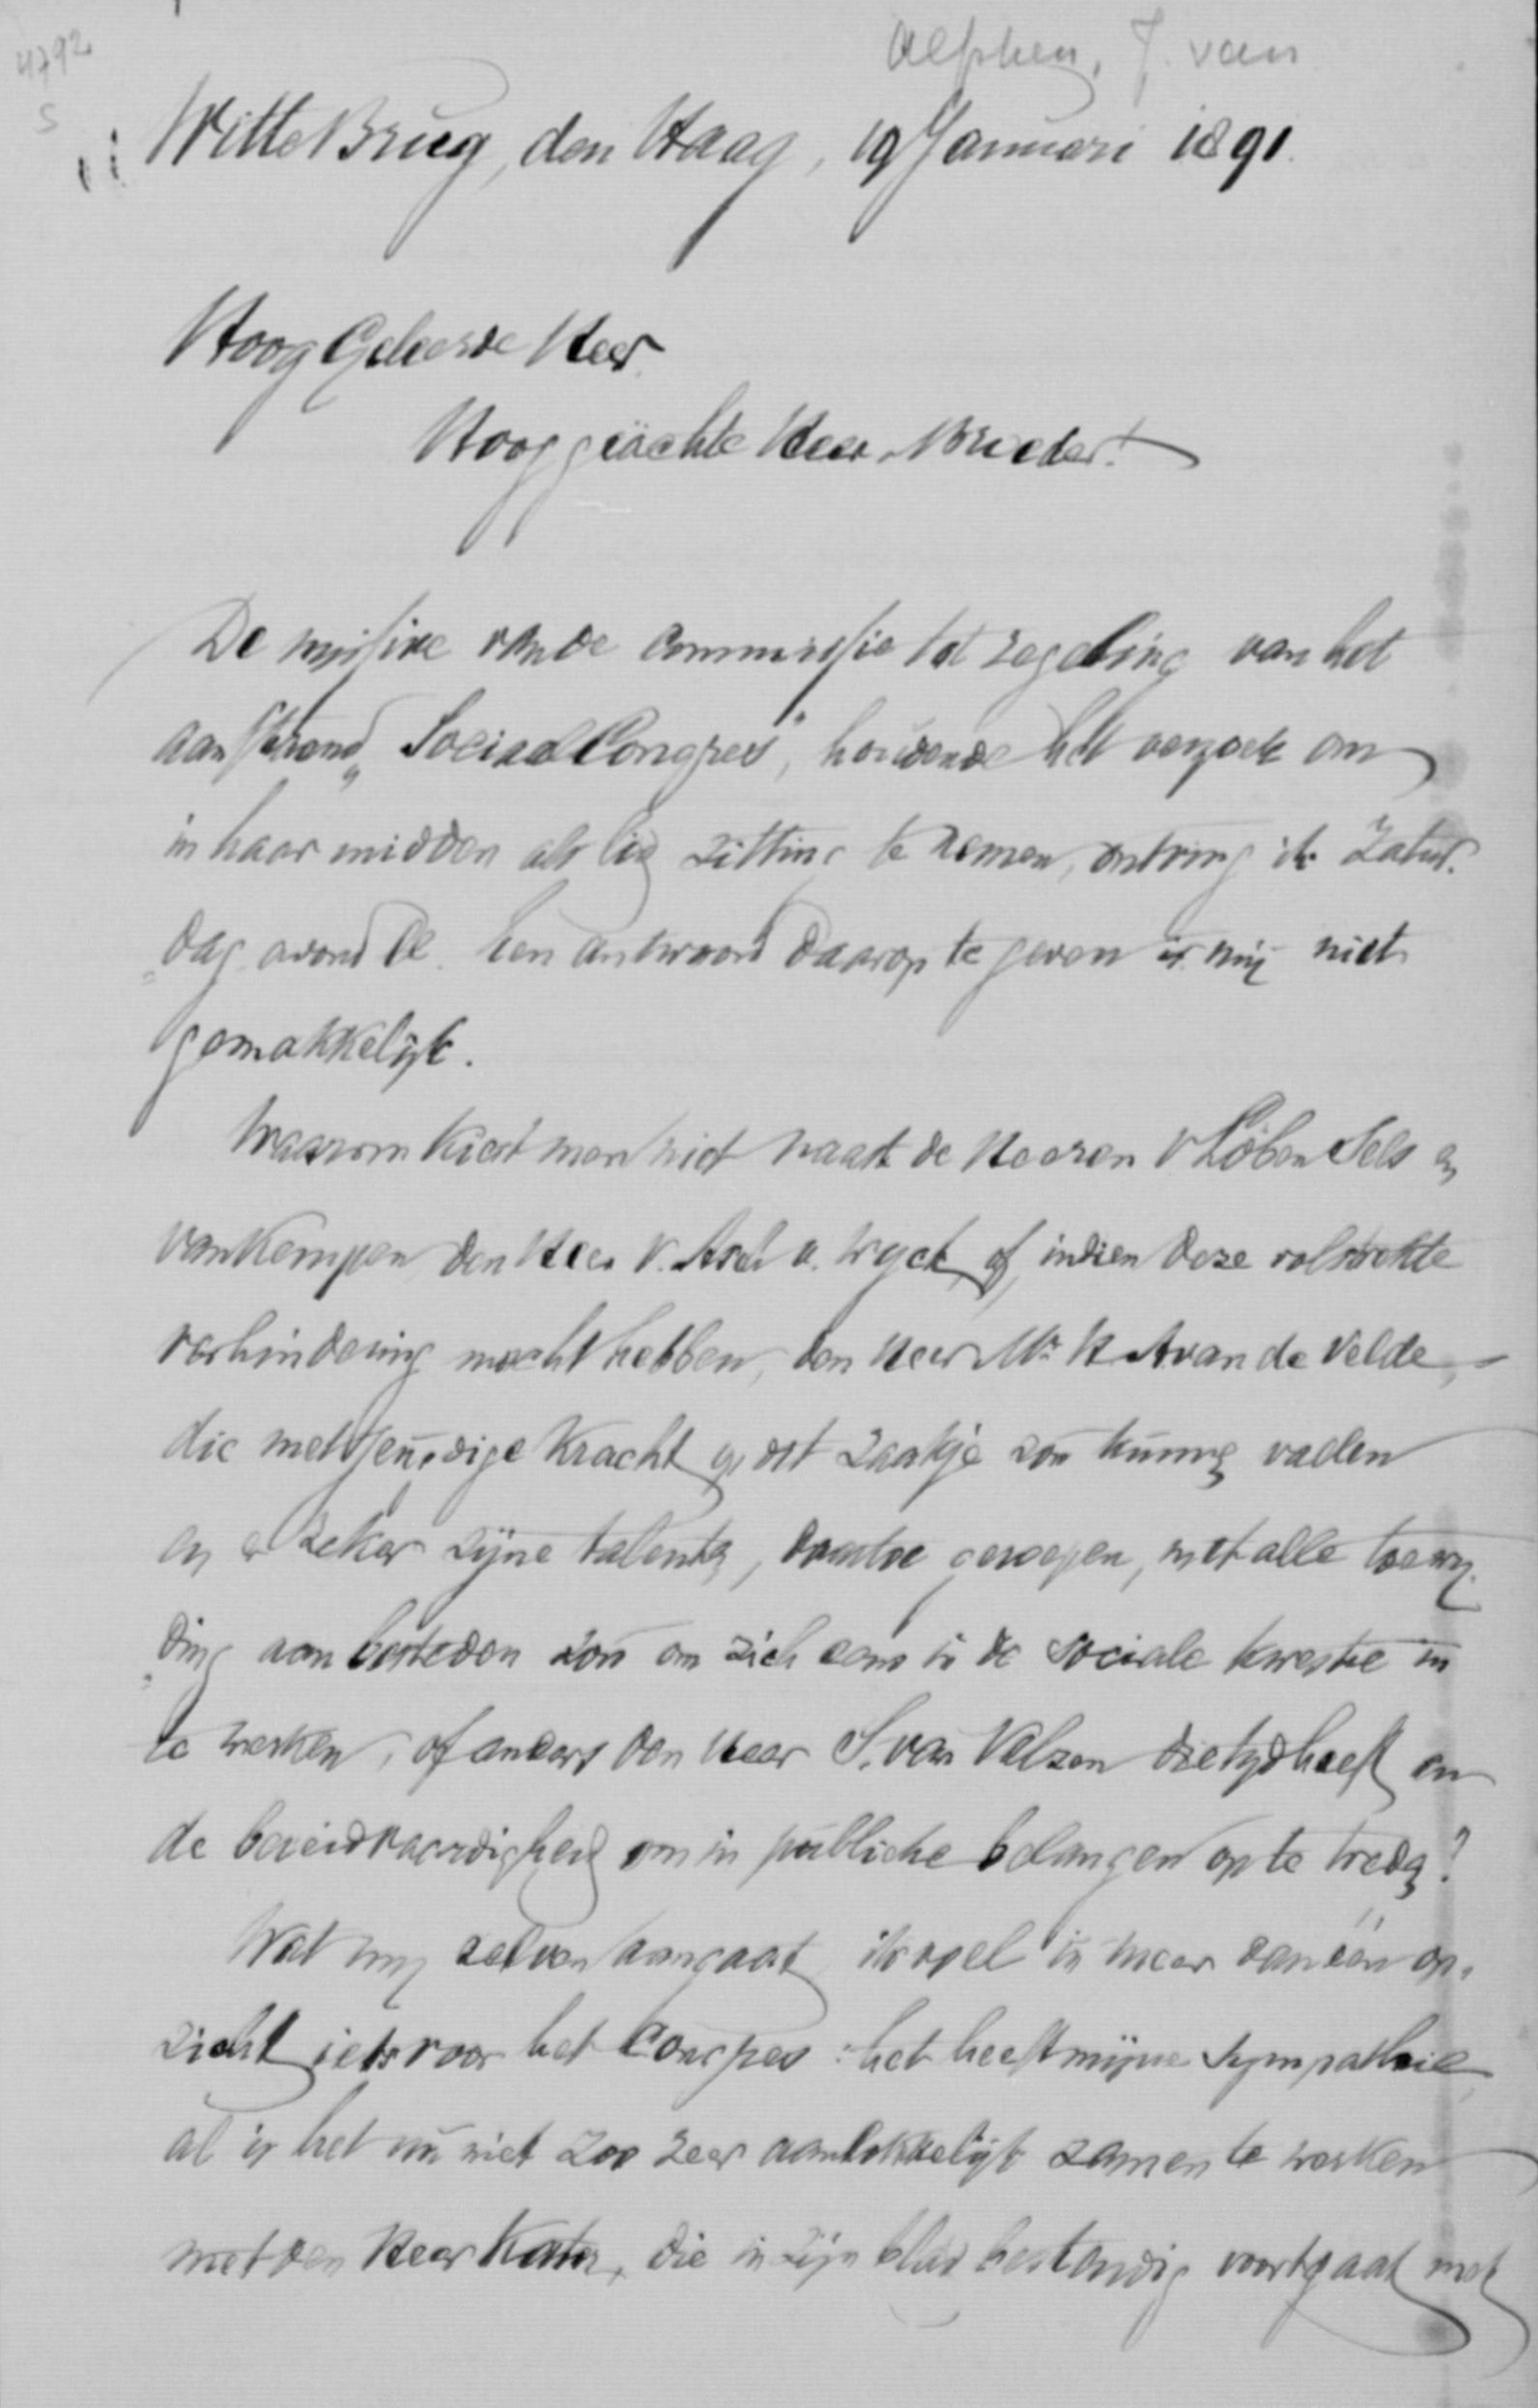 4792
S
Alphen, J. van
Witte Brug, den Haag, 19 Januari 1891.
Hoog Geleerde Heer
Hooggeächte Heer Broeder!
De missive van de Commissie tot regeling van het
aanstaand „Sociaal Congres", houdende het verzoek om
in haar midden als lid zitting te nemen, ontving ik Zatur-
dag avond l.l. Een antwoord daarop te geven is mij niet
gemakkelijk.
Waarom kiest men niet naast de Heeren v Löben Sels en
van Kempen den Heer v. Asch v. Wyck, of, indien deze volstrekte
verhindering mocht hebben, den Heer Mr. K A van de Velde,
die met jeugdige kracht op dit zaakje zou kunnen vallen
en er zeker zijne talenten, daartoe geroepen, met alle toewij-
ding aan besteden zou om zich eens in de sociale kwestie in
te werken, of anders den Heer S. van Velzen die tijd heeft en
de bereidvaardigheid om in publieke belangen op te treden?
Wat mij zelven aangaat, ik voel in meer dan één op-
zicht iets voor het Congres: het heeft mijne sympathie,
al is het nu niet zoo zeer aanlokkelijk zamen te werken
met den Heer Kater, die in zijn blad bestendig voortgaat met